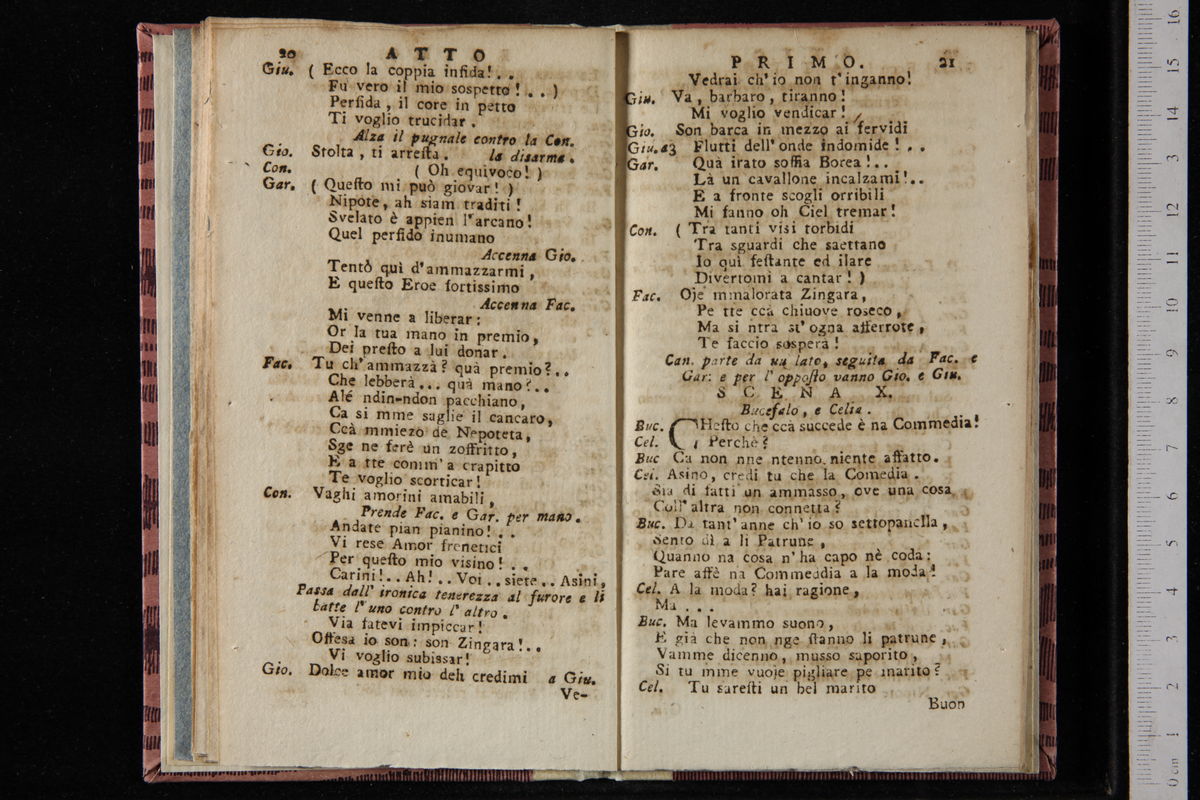 20 ATTO
Giu. ( Ecco la coppia infida!. .
Fu vero il mio sospetto!. . )
Perfida, il core in petto
Ti voglio trucidar.
Alza il pugnale contro la Con.
Gio. Stolta, ti arreſta. la disarma.
Con. ( Oh equivoco! )
Gar. ( Queſto mi può giovar! )
Nipote, ah siam traditi!
Svelato è appien l'arcano!
Quel perfido inumano
Accenna Gio.
Tentò quì d'ammazzarmi,
E queſto Eroe fortissimo
Accenna Fac.
Mi venne a liberar:
Or la tua mano in premio,
Dei preſto a lui donar.
Fac. Tu ch'ammazzà? quà premio?..
Che lebberà... quà mano?..
Alé ndin-ndon pacchiano,
Ca si mme saglie il cancaro,
Ccà mmiezo de Nepoteta,
Sge ne ferè un zoffritto,
E a tte comm'a crapitto
Te voglio scorticar!
Con. Vaghi amorini amabili,
Prende Fac. e Gar. per mano.
Andate pian pianino!. .
Vi rese Amor frenetici
Per queſto mio visino!. .
Carini!.. Ah!.. Voi.. siete.. Asini,
Passa dall' ironica tenerezza al furore e li
batte l'uno contro l'altro.
Via fatevi impiccar!
Offesa io son: son Zingara!..
Vi voglio subissar!
Gio. Dolce amor mio deh credimi a Giu.
Ve-
PRIMO. 21
Vedrai ch'io non t'inganno!
Giu. Va, barbaro, tiranno!
Mi voglio vendicar!
Gio. Son barca in mezzo ai fervidi
Giu.a3 Flutti dell'onde indomide!. .
Gar. Quà irato soffia Borea!..
Là un cavallone incalzami!..
E a fronte scogli orribili
Mi fanno oh Ciel tremar!
Con. ( Tra tanti visi torbidi
Tra sguardi che saettano
Io quì feſtante ed ilare
Divertomi a cantar! )
Fac. Oje mmalorata Zingara,
Pe tte ccà chiuove roseco,
Ma si ntra st'ogna afferrote,
Te faccio sosperà!
Can. parte da uu lato, seguita da Fac. e
Gar: e per l'oppoſto vanno Gio. e Giu.
SCENA X.
Bucefalo, e Celia.
Buc. CHeſto che ccà succede è na Commedia!
Cel. Perchè?
Buc Ca non nne ntenno niente affatto.
Cel. Asino, credi tu che la Comedia.
Sia di fatti un ammasso, ove una cosa
Coll'altra non connetta?
Buc. Da tant'anne ch'io so settopanella,
Sento dì a li Patrune,
Quanno na cosa n'ha capo nè coda:
Pare affè na Commeddia a la moda!
Cel. A la moda? hai ragione,
Ma . . .
Buc. Ma levammo suono,
E già che non nge ſtanno li patrune,
Vamme dicenno, musso saporito,
Si tu mme vuoje pigliare pe marito?
Cel. Tu sareſti un bel marito
Buon
0 cm 1 2 3 4 5 6 7 8 9 10 11 12 13 14 15 16